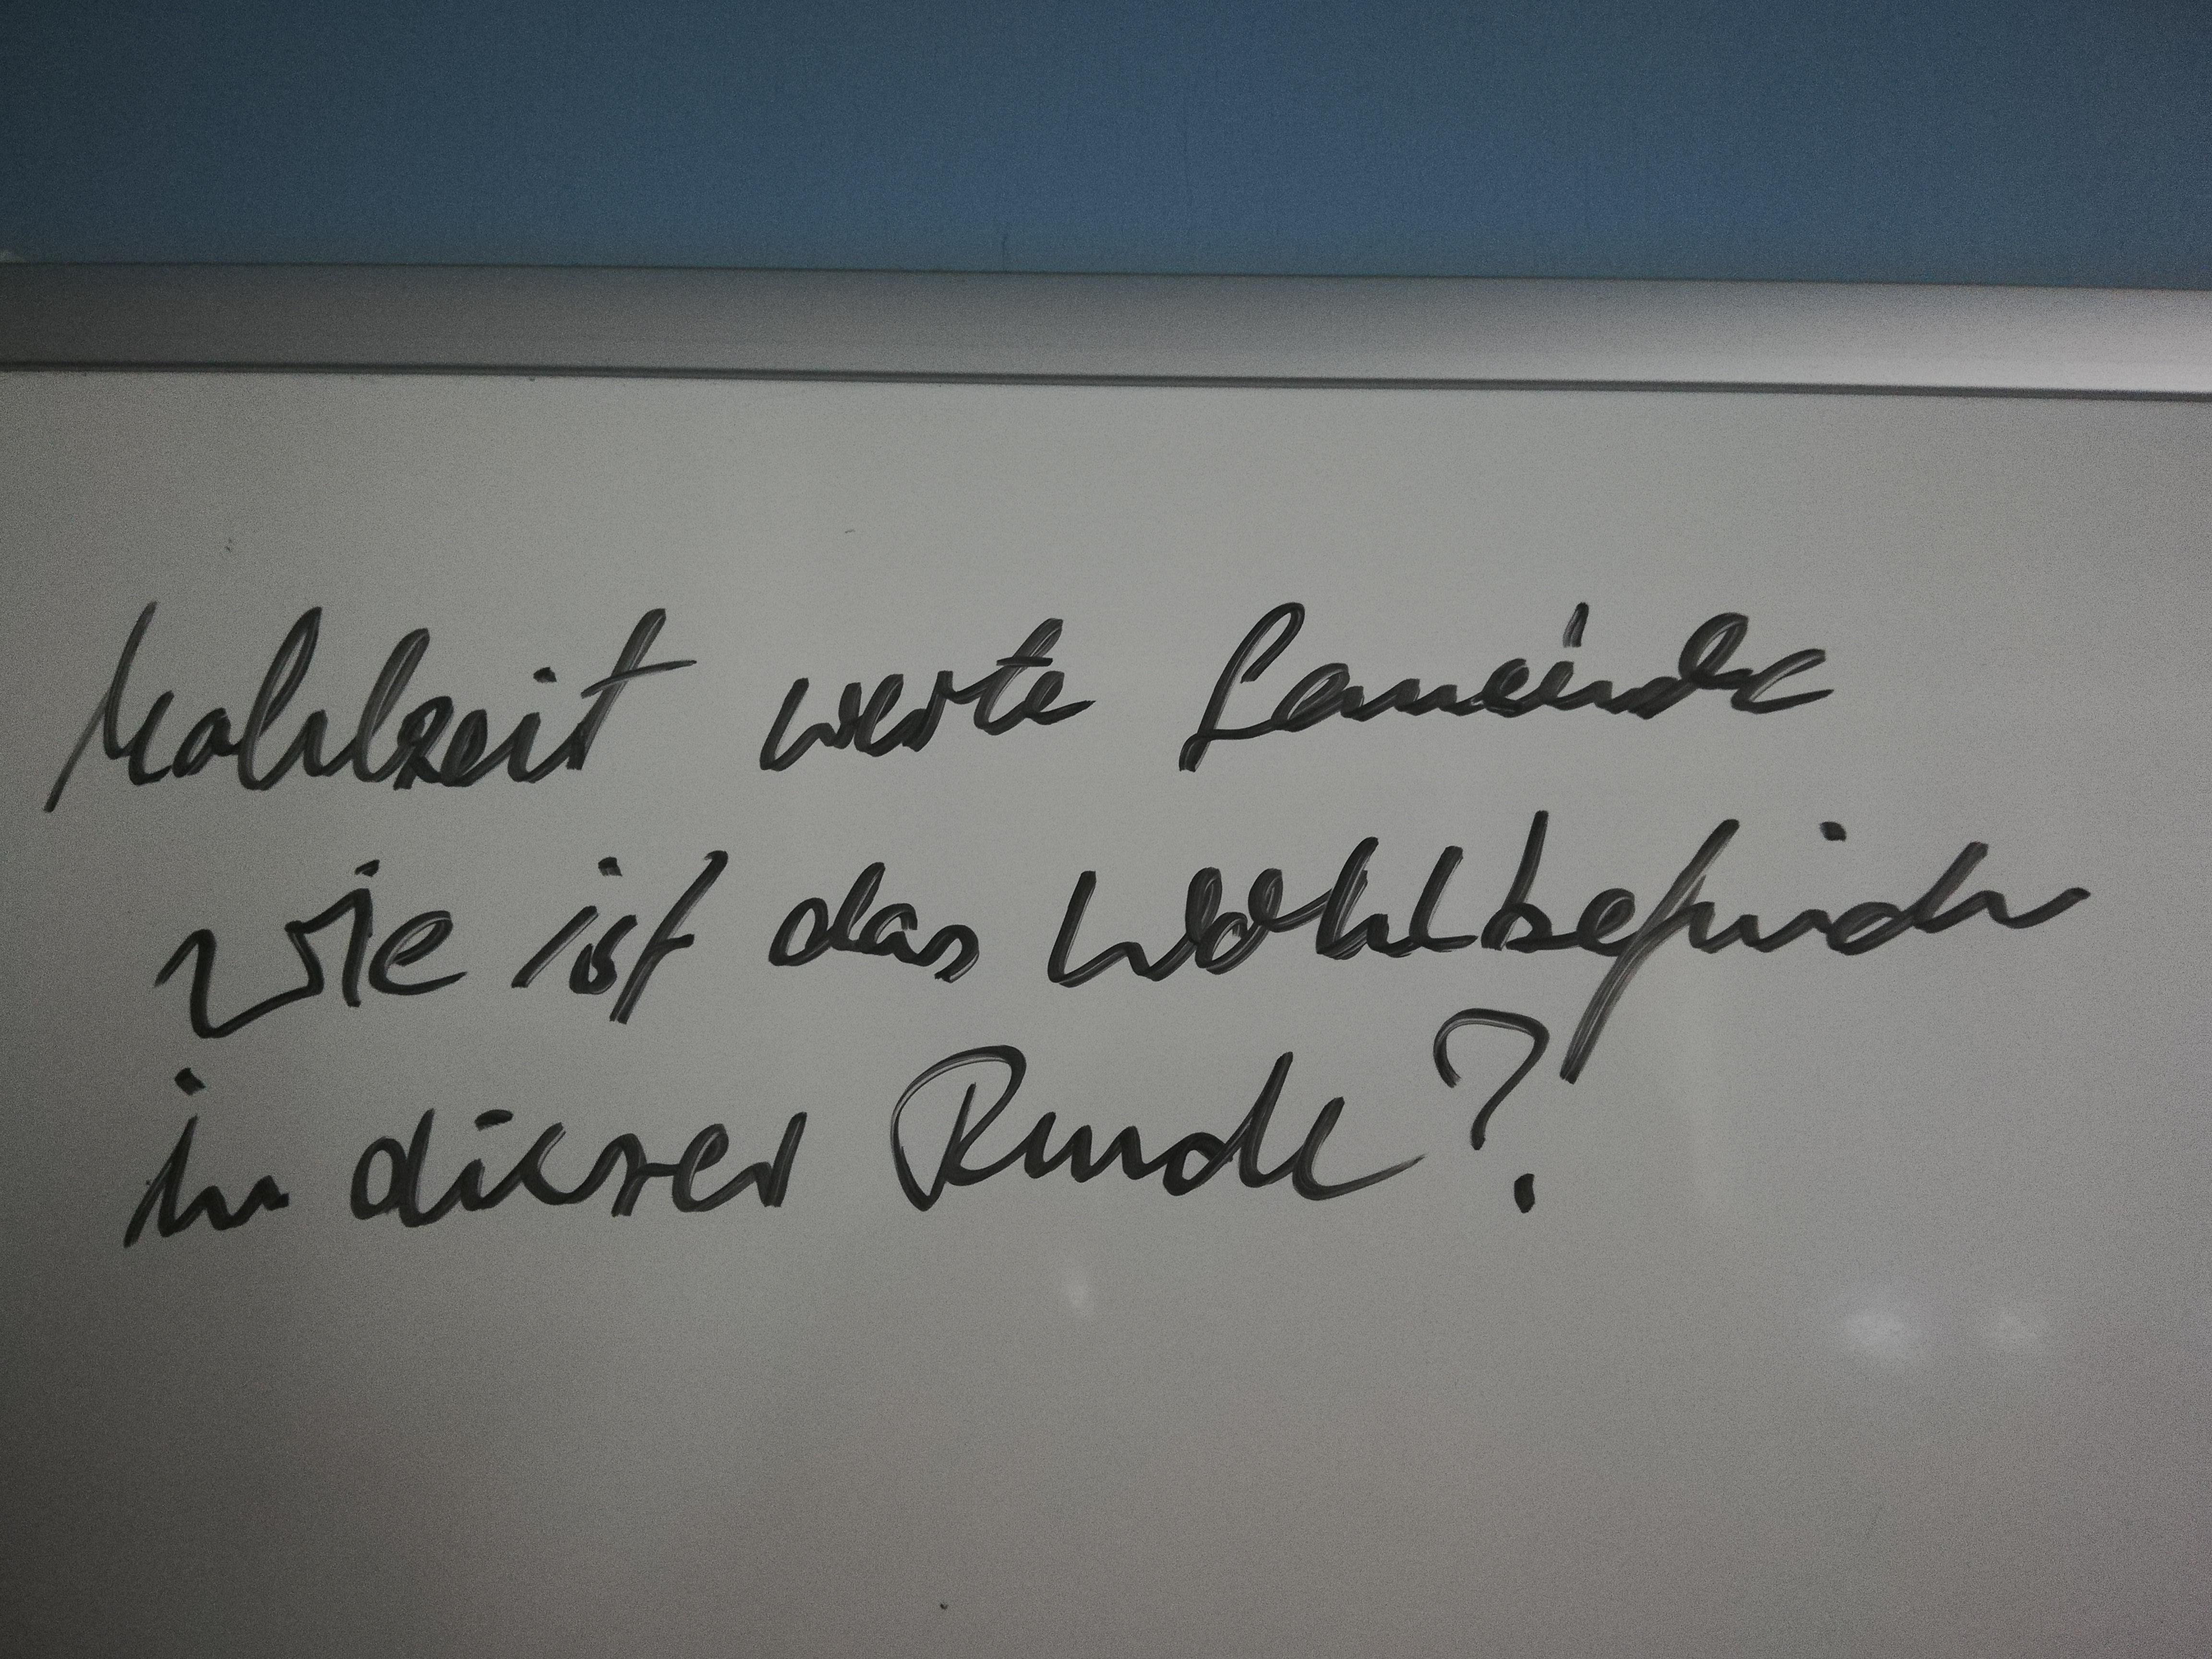 Mahlzeit werte Gemeinde
Wie ist das Wohlbefinden
in dieser Runde?